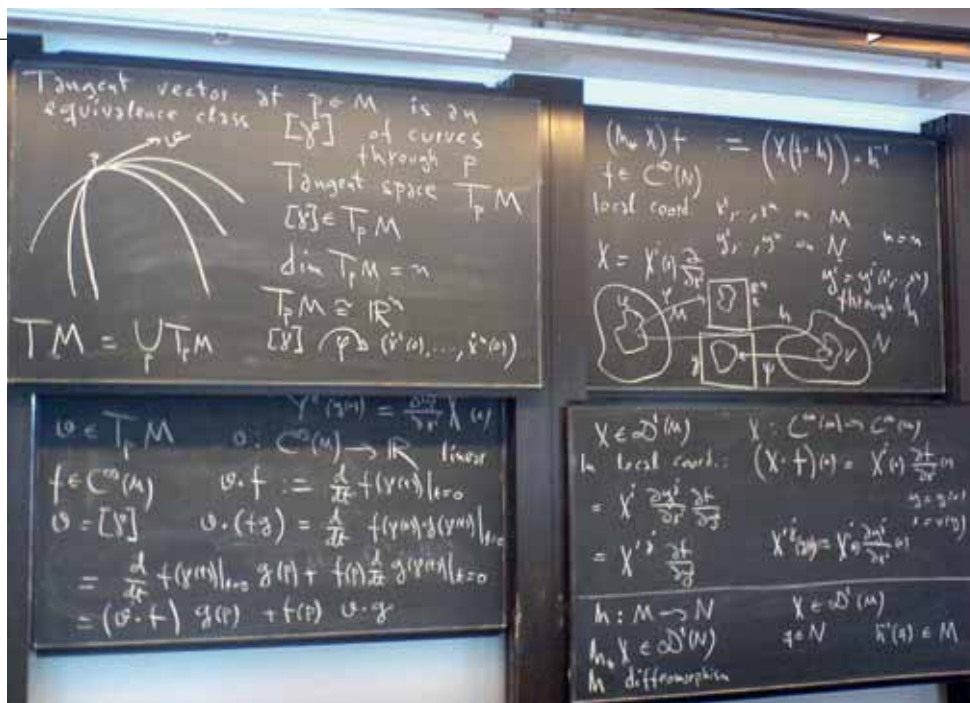 Tangent vector at p ∈ M is an
equivalence class [γ] of curves
through p
v
p
Tangent space T_p M
[γ] ∈ T_p M
dim T_p M = n
T_p M ≅ ℝⁿ
TM = ⋃_p T_p M
[γ] φ (ẋ¹(0), ..., ẋⁿ(0))
v ∈ T_p M v : C^∞(M) → ℝ linear
f ∈ C^∞(M) v · f := d/dt f(γ(t))|_{t=0}
v = [γ] v · (fg) = d/dt f(γ(t)) · g(γ(t))|_{t=0}
= d/dt f(γ(t))|_{t=0} g(p) + f(p) d/dt g(γ(t))|_{t=0}
= (v · f) g(p) + f(p) v · g
(h_* X) f := (X(f∘h)) ∘ h⁻¹
f ∈ C^∞(N)
local coord. x¹, .., xⁿ on M
y¹, .., yⁿ on N
X = Xⁱ(x) ∂/∂xⁱ
through h
U φ M ℝⁿ h
ψ V N
X ∈ 𝒟¹(M) X : C^∞(M) → C^∞(M)
In local coord.: (X · f)(x) = Xⁱ(x) ∂f/∂xⁱ (x)
= Xⁱ ∂yʲ/∂xⁱ ∂f/∂yʲ
y = y(x)
x = x(y)
= X'ʲ ∂f/∂yʲ X'ʲ(y) = Xⁱ(x) ∂yʲ/∂xⁱ (x)
h : M → N X ∈ 𝒟¹(M)
h_* X ∈ 𝒟¹(N) q ∈ N h⁻¹(q) ∈ M
h diffeomorphism